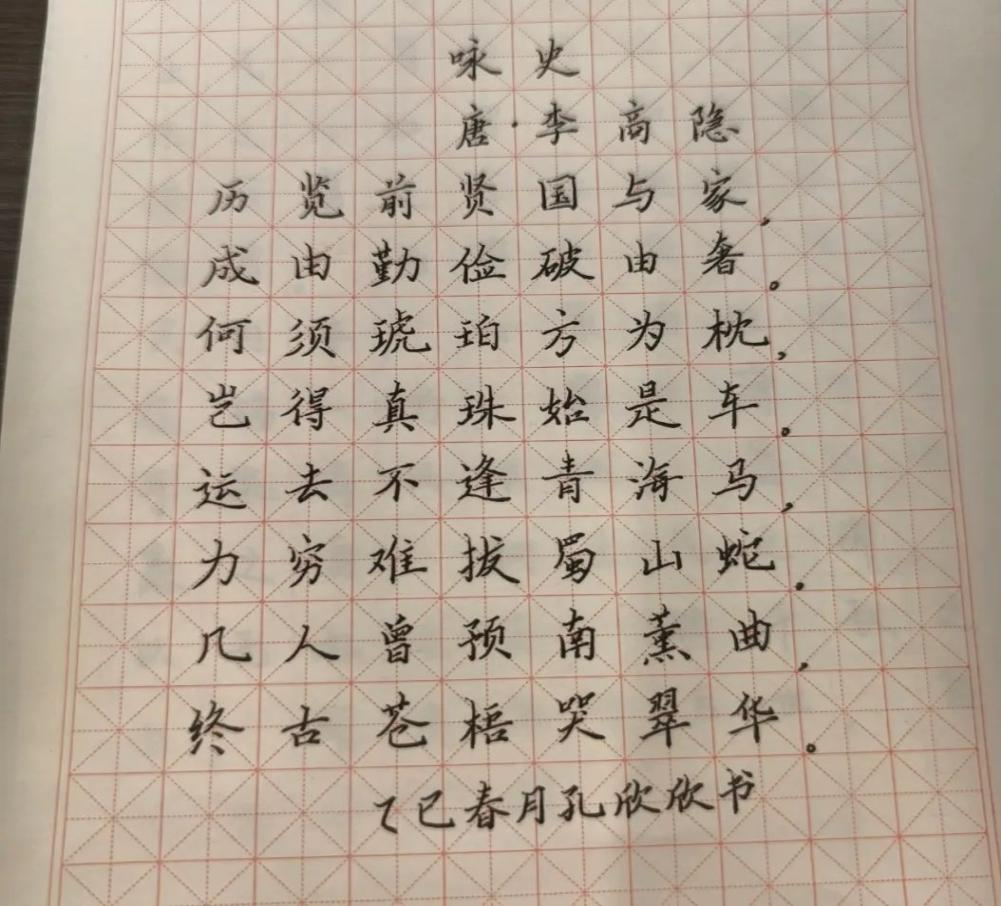 咏史
唐·李高隐
历览前贤国与家,
成由勤俭破由奢。
何须琥珀方为枕,
岂得真珠始是车。
运去不逢青海马,
力穷难拔蜀山蛇。
几人曾预南薰曲,
终古苍梧哭翠华。
乙巳春月孔欣欣书